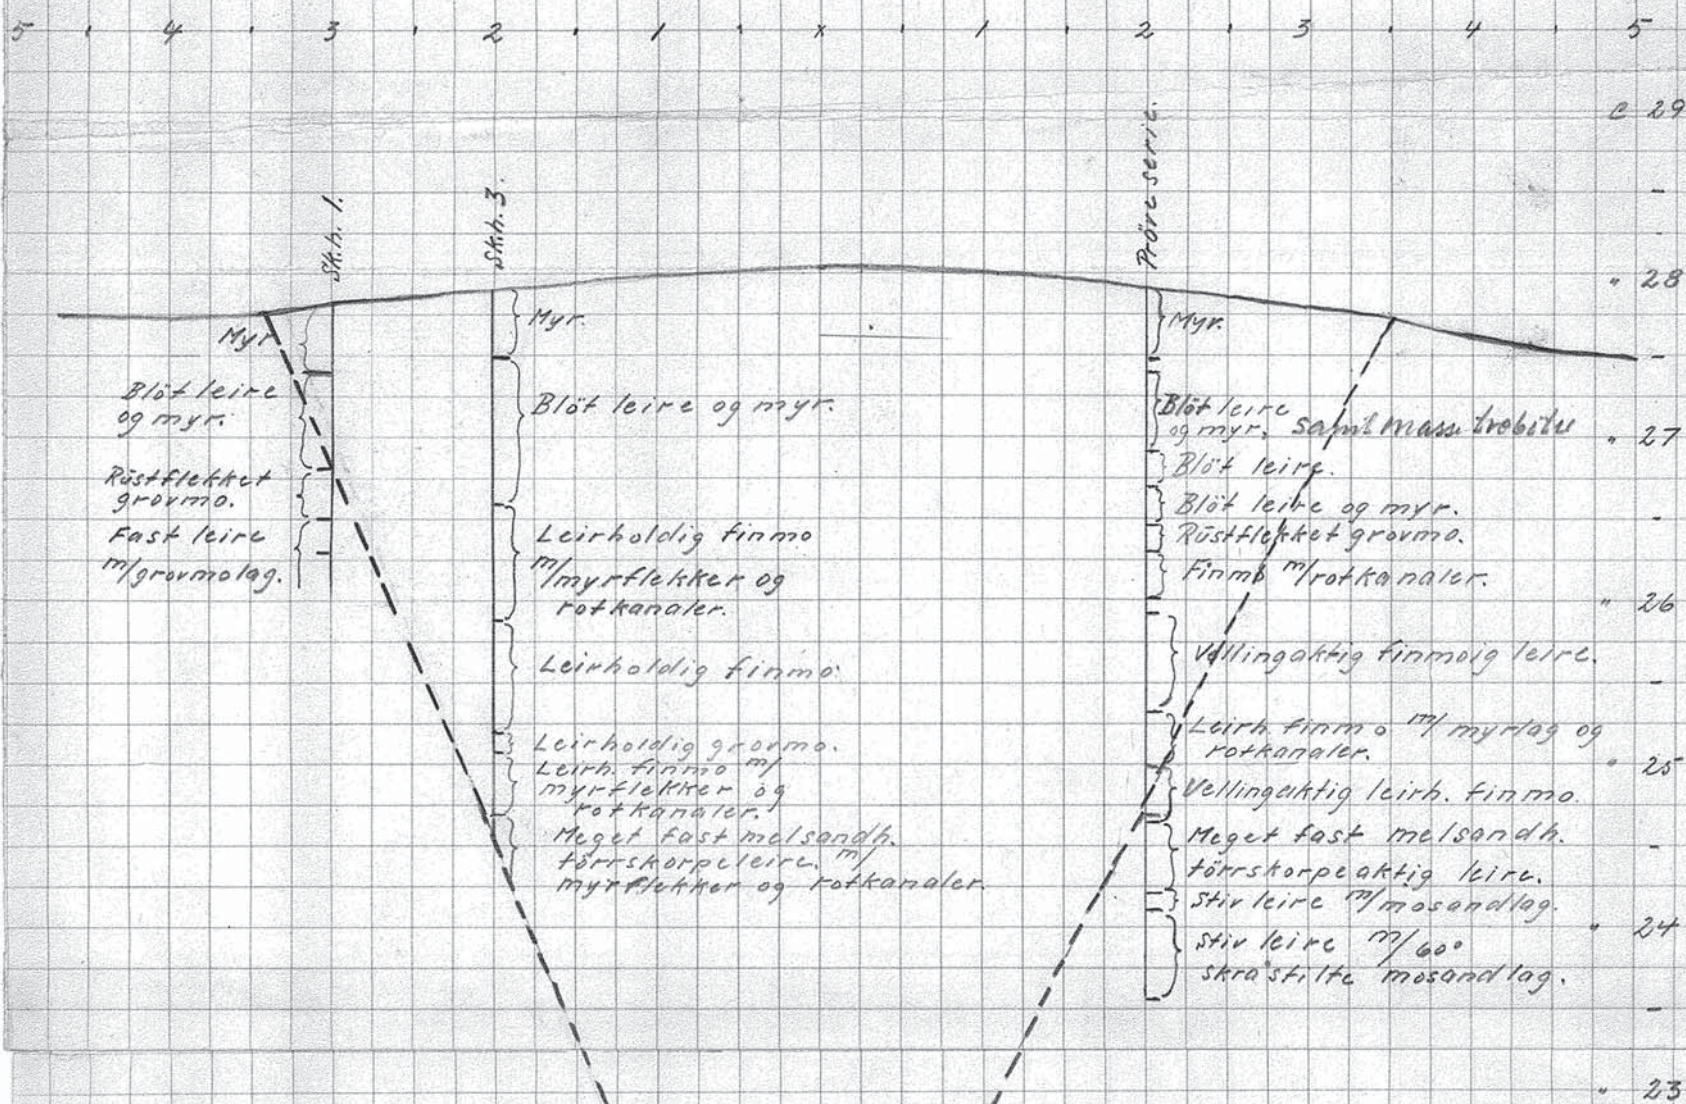 5 4 3 2 1 x 1 2 3 4 5
c 29
" 28
" 27
" 26
" 25
" 24
" 23
Sk.h. 1.
Myr
Blöt leire
og myr.
Rüstflekket
grovmo.
Fast leire
m/grovmolag.
Sk.h. 3.
Myr.
Blöt leire og myr.
Leirholdig finmo
m/myrflekker og
rotkanaler.
Leirholdig finmo.
Leirholdig grovmo.
Leirh. finmo m/
myrflekker og
rotkanaler.
Meget fast melsandh.
törrskorpeleire. m/
myrflekker og rotkanaler.
Pröveserie.
Myr.
Blöt leire
og myr, samt masse trebiter
Blöt leire.
Blöt leire og myr.
Rüstflekket grovmo.
Finmo m/rotkanaler.
Vellingaktig finmoig leire.
Leirh. finmo m/ myrlag og
rotkanaler.
Vellingaktig leirh. finmo.
Meget fast melsandh.
törrskorpeaktig leire.
Stiv leire m/mosandlag.
Stiv leire m/60°
skråstilte mosandlag.